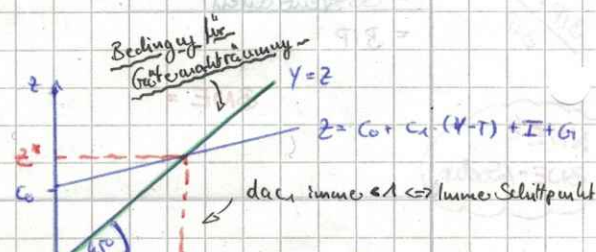 Bedingung für
Gütermarkträumung
Z
Y=Z
Z = C₀ + C₁ · (Y-T) + I + G
Z*
C₀
da c₁ immer <1 <=> Immer Schnittpunkt
45°